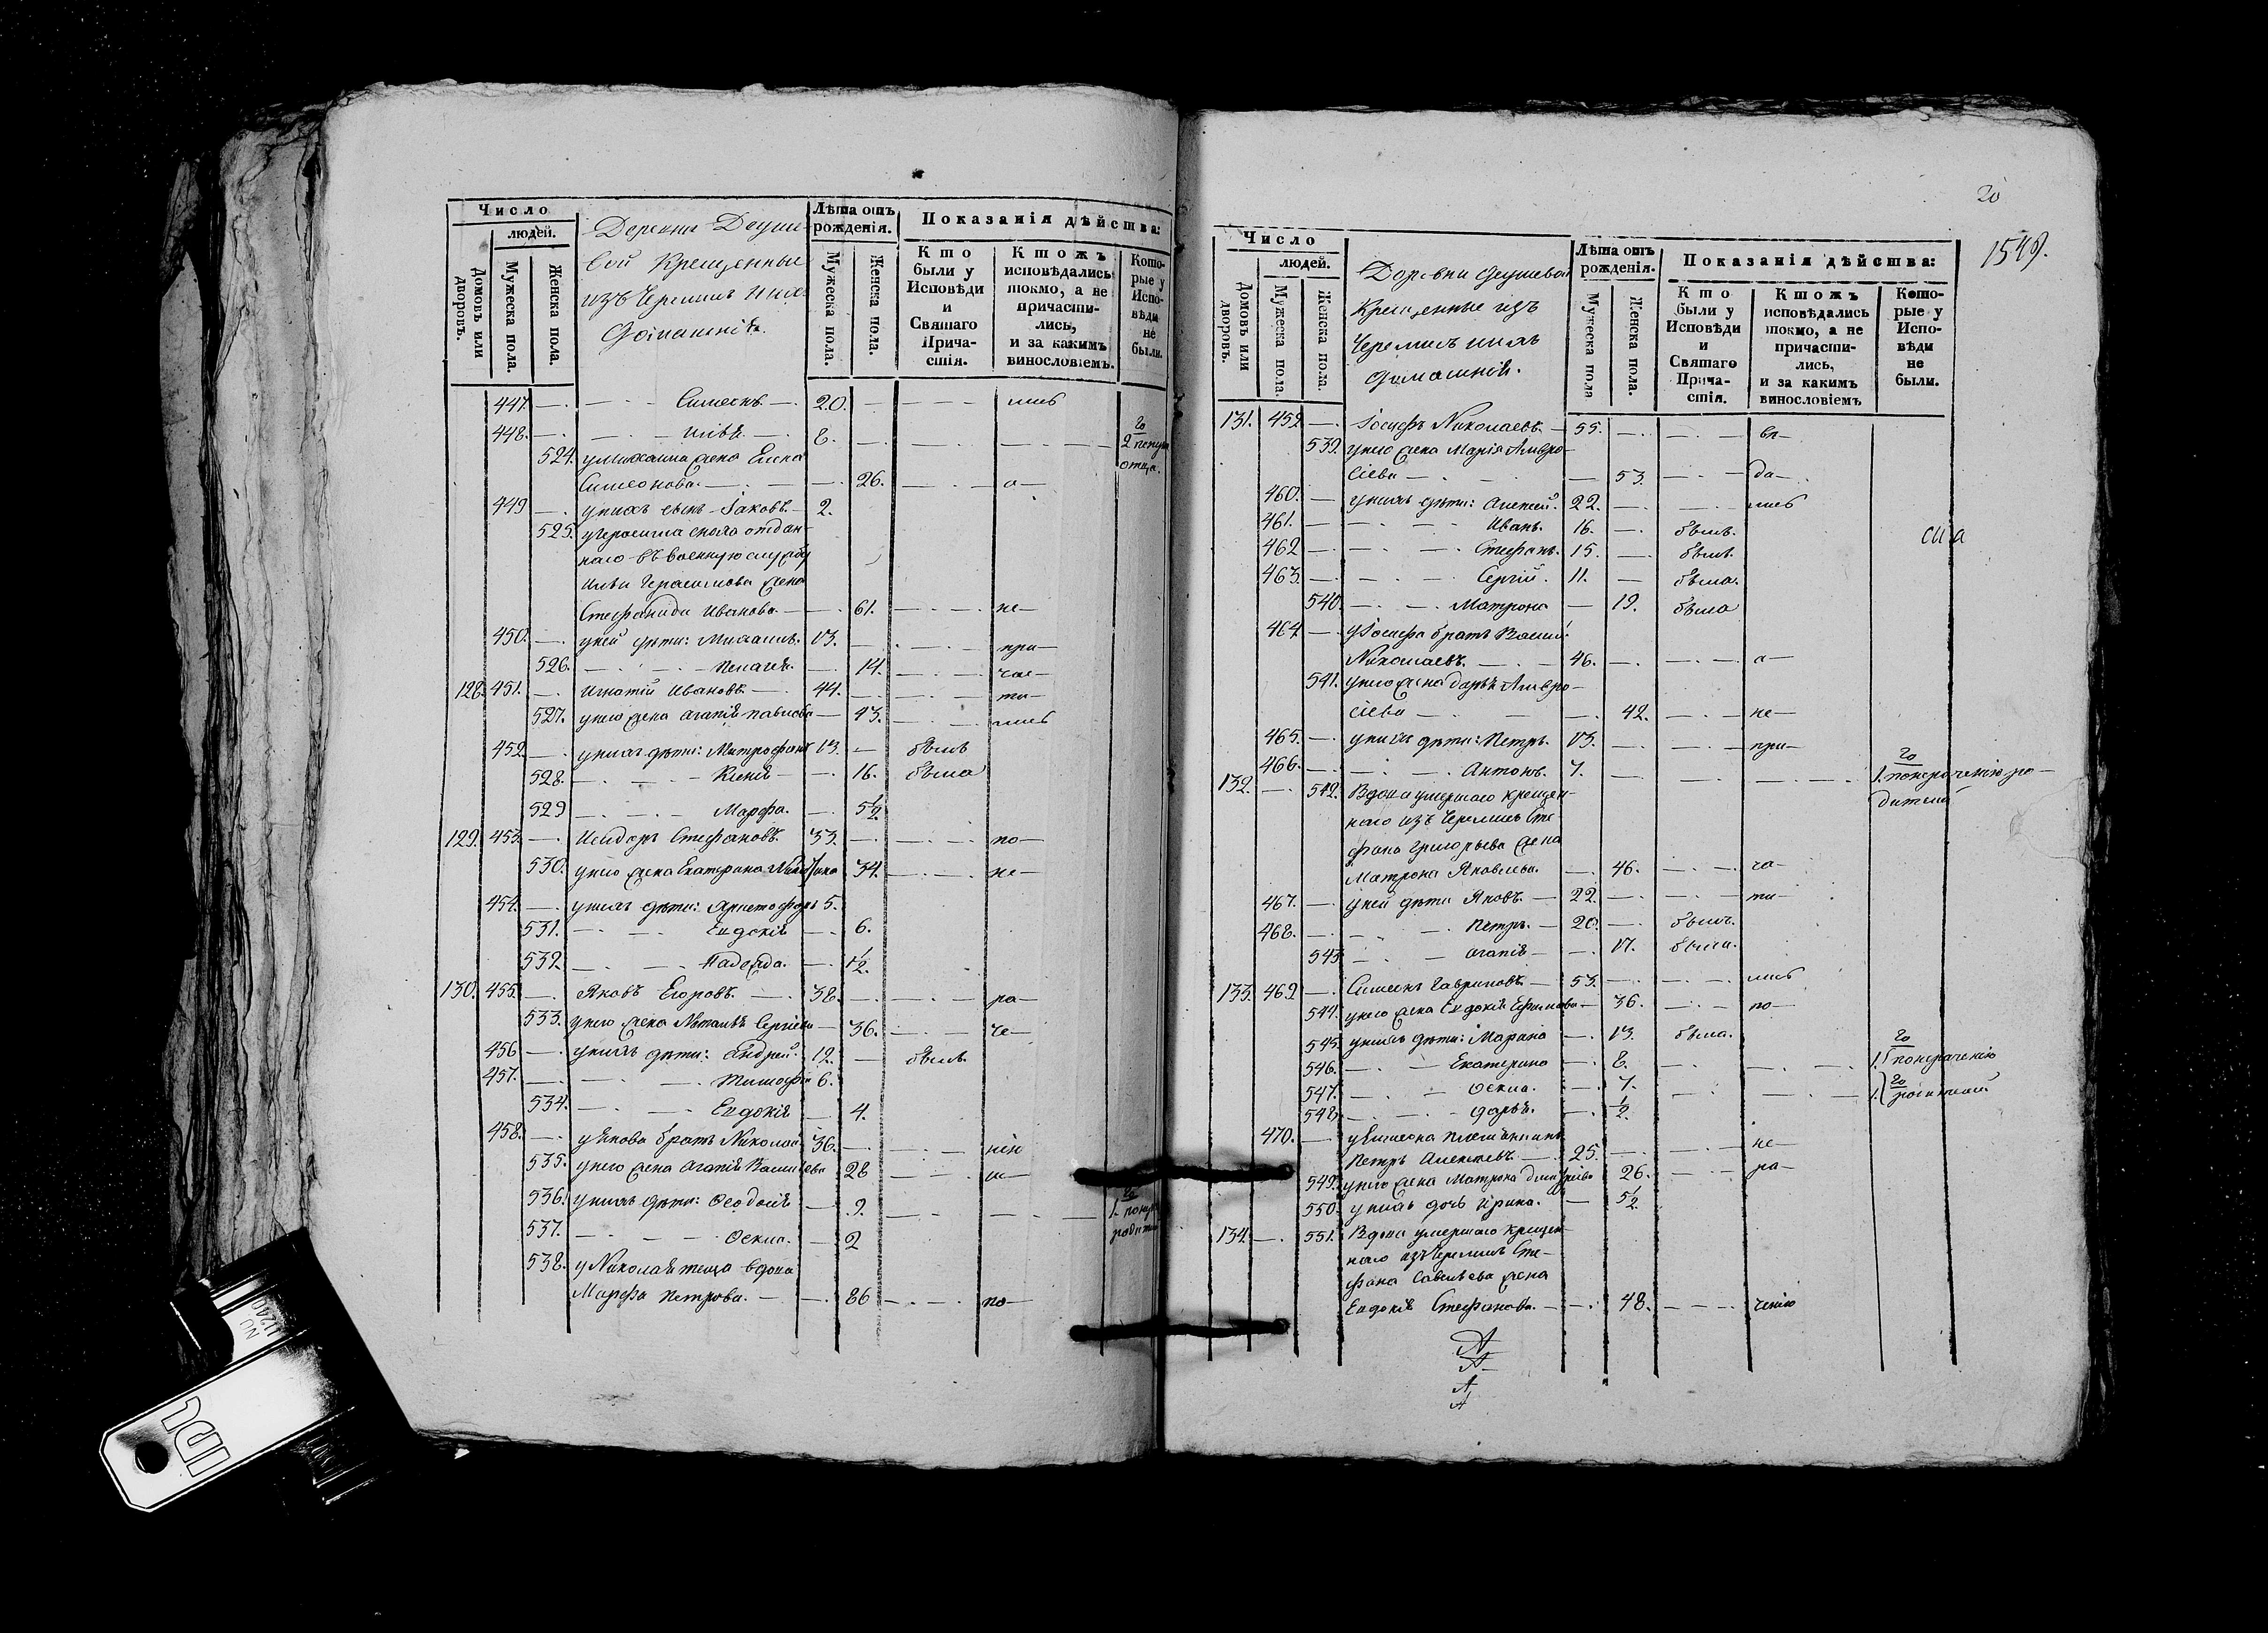 Число
людей.
Домовъ или дворовъ.
Мужеска пола.
Женска пола.
Деревни Деуше-
вой Крещенные
изъ Черемисъ и ихъ
Домашнія.
Лѣта отъ рожденія.
Мужеска пола.
Женска пола.
Показанія дѣйства:
Кто были у Исповѣди и Святаго Прича-стія.
Ктожъ исповѣдались токмо, а не причасти-лись, и за какимъ винословіемъ.
Кото-рые у Испо-вѣди не были.
447. — Симеонъ. — 20. — лись
448. — Илія. — 8. — 2 по
524. у Михаила жена Елена отца.
Симеонова. — 26. — а—
449 — у нихъ сынъ Іаковъ. 2.
525. у Герасима сноха отдан-
наго въ военную службу
Ильи Герасимова жена
Стефанида Иванова. — 61. — не—
450. — у ней дѣти: Михаилъ. 13. — при—
526. — Пелагія. — 14. — час—
128. 451. — Игнатій Ивановъ. — 44. — ти—
527. у него жена Агапія Павлова — 43. — лись
452 — у нихъ дѣти: Митрофанъ 13. — былъ
528. — Ксенія — 16. была
529 — Марфа. — 5½
129. 453. — Исидоръ Стефановъ. 33. — по—
530. у него жена Екатерина 34. — не—
454. — у нихъ дѣти: Христофоръ 5.
531. — Евдокія — 6.
532. — Надежда. — 1½.
130. 455. — Яковъ Егоровъ. — 38. — ра—
533. у него жена Наталія Сергіева — 36. — че—
456 — у нихъ дѣти: Андрей. 12. — былъ
457. — Тимофей 6.
534. — Евдокія — 4.
458. — у Якова братъ Николай. 36. — нію
535. у него жена Агапія Васильева 28
536. у нихъ дѣти: Феодосія — 9. — 1. по
537. — Фекла. — 2
538. у Николая теща вдова
Марфа Петрова. — 86 — по—
20
1549.
Число
людей.
Домовъ или дворовъ.
Мужеска пола.
Женска пола.
Деревни Деушевой
Крещенные изъ
Черемисъ и ихъ
Домашнія.
Лѣта отъ рожденія.
Мужеска пола
Женска пола.
Показанія дѣйства:
Кто были у Исповѣди и Святаго Прича-стія.
Ктожъ исповѣдались токмо, а не причасти-лись, и за какимъ винословіемъ
Кото-рые у Испо-вѣди не были.
131. 459. — Іосифъ Николаевъ. — 55. —
539. у него жена Марія Амвро-
сіева — 53. — да—
460. — у нихъ дѣти: Алексей. 22. — лись
461. — Иванъ. 16. — былъ.
462 — Стефанъ. 15. — былъ.
463. — Сергій. 11. — была.
540. — Матрона — 19. была
464 — у Іосифа братъ Васил:
Николаевъ. — 46. — а—
541. у него жена Дарья Амвро—
сіева — 42. — не—
465. — у нихъ дѣти: Петръ. 13. — при—
466. — Антонъ. 7. — 1. по нерачению ро—
дителей
132. — 542. Вдова умершаго крещен-
наго изъ Черемисъ Сте-
фана Григорьева жена
Матрона Яковлева. — 46. — ча—
467. — у ней дѣти Яковъ. — 22. — ти—
468. — Петръ. — 20. — былъ.
543 — Агапія — 17. была.
133. 469 — Симеонъ Гавриловъ. — 53. — лись
544. у него жена Евдокія Ефимова — 36. — по—
545. у нихъ дѣти: Марина — 13. была.
546. — Екатерина — 8. — 1. по нерачению
547. — Фекла. — 7. — 1. родителей
548. — Дарья. — ½.
470. — у Симеона племянникъ
Петръ Алексеевъ. — 25. — не—
549. у него жена Матрона 26. — ра—
550. у нихъ дочь Ирина. — 5½
134. — 551. Вдова умершаго крещен-
наго изъ Черемисъ Сте-
фана Савельева жена
Евдокія Стефанова. — 48. — ченію